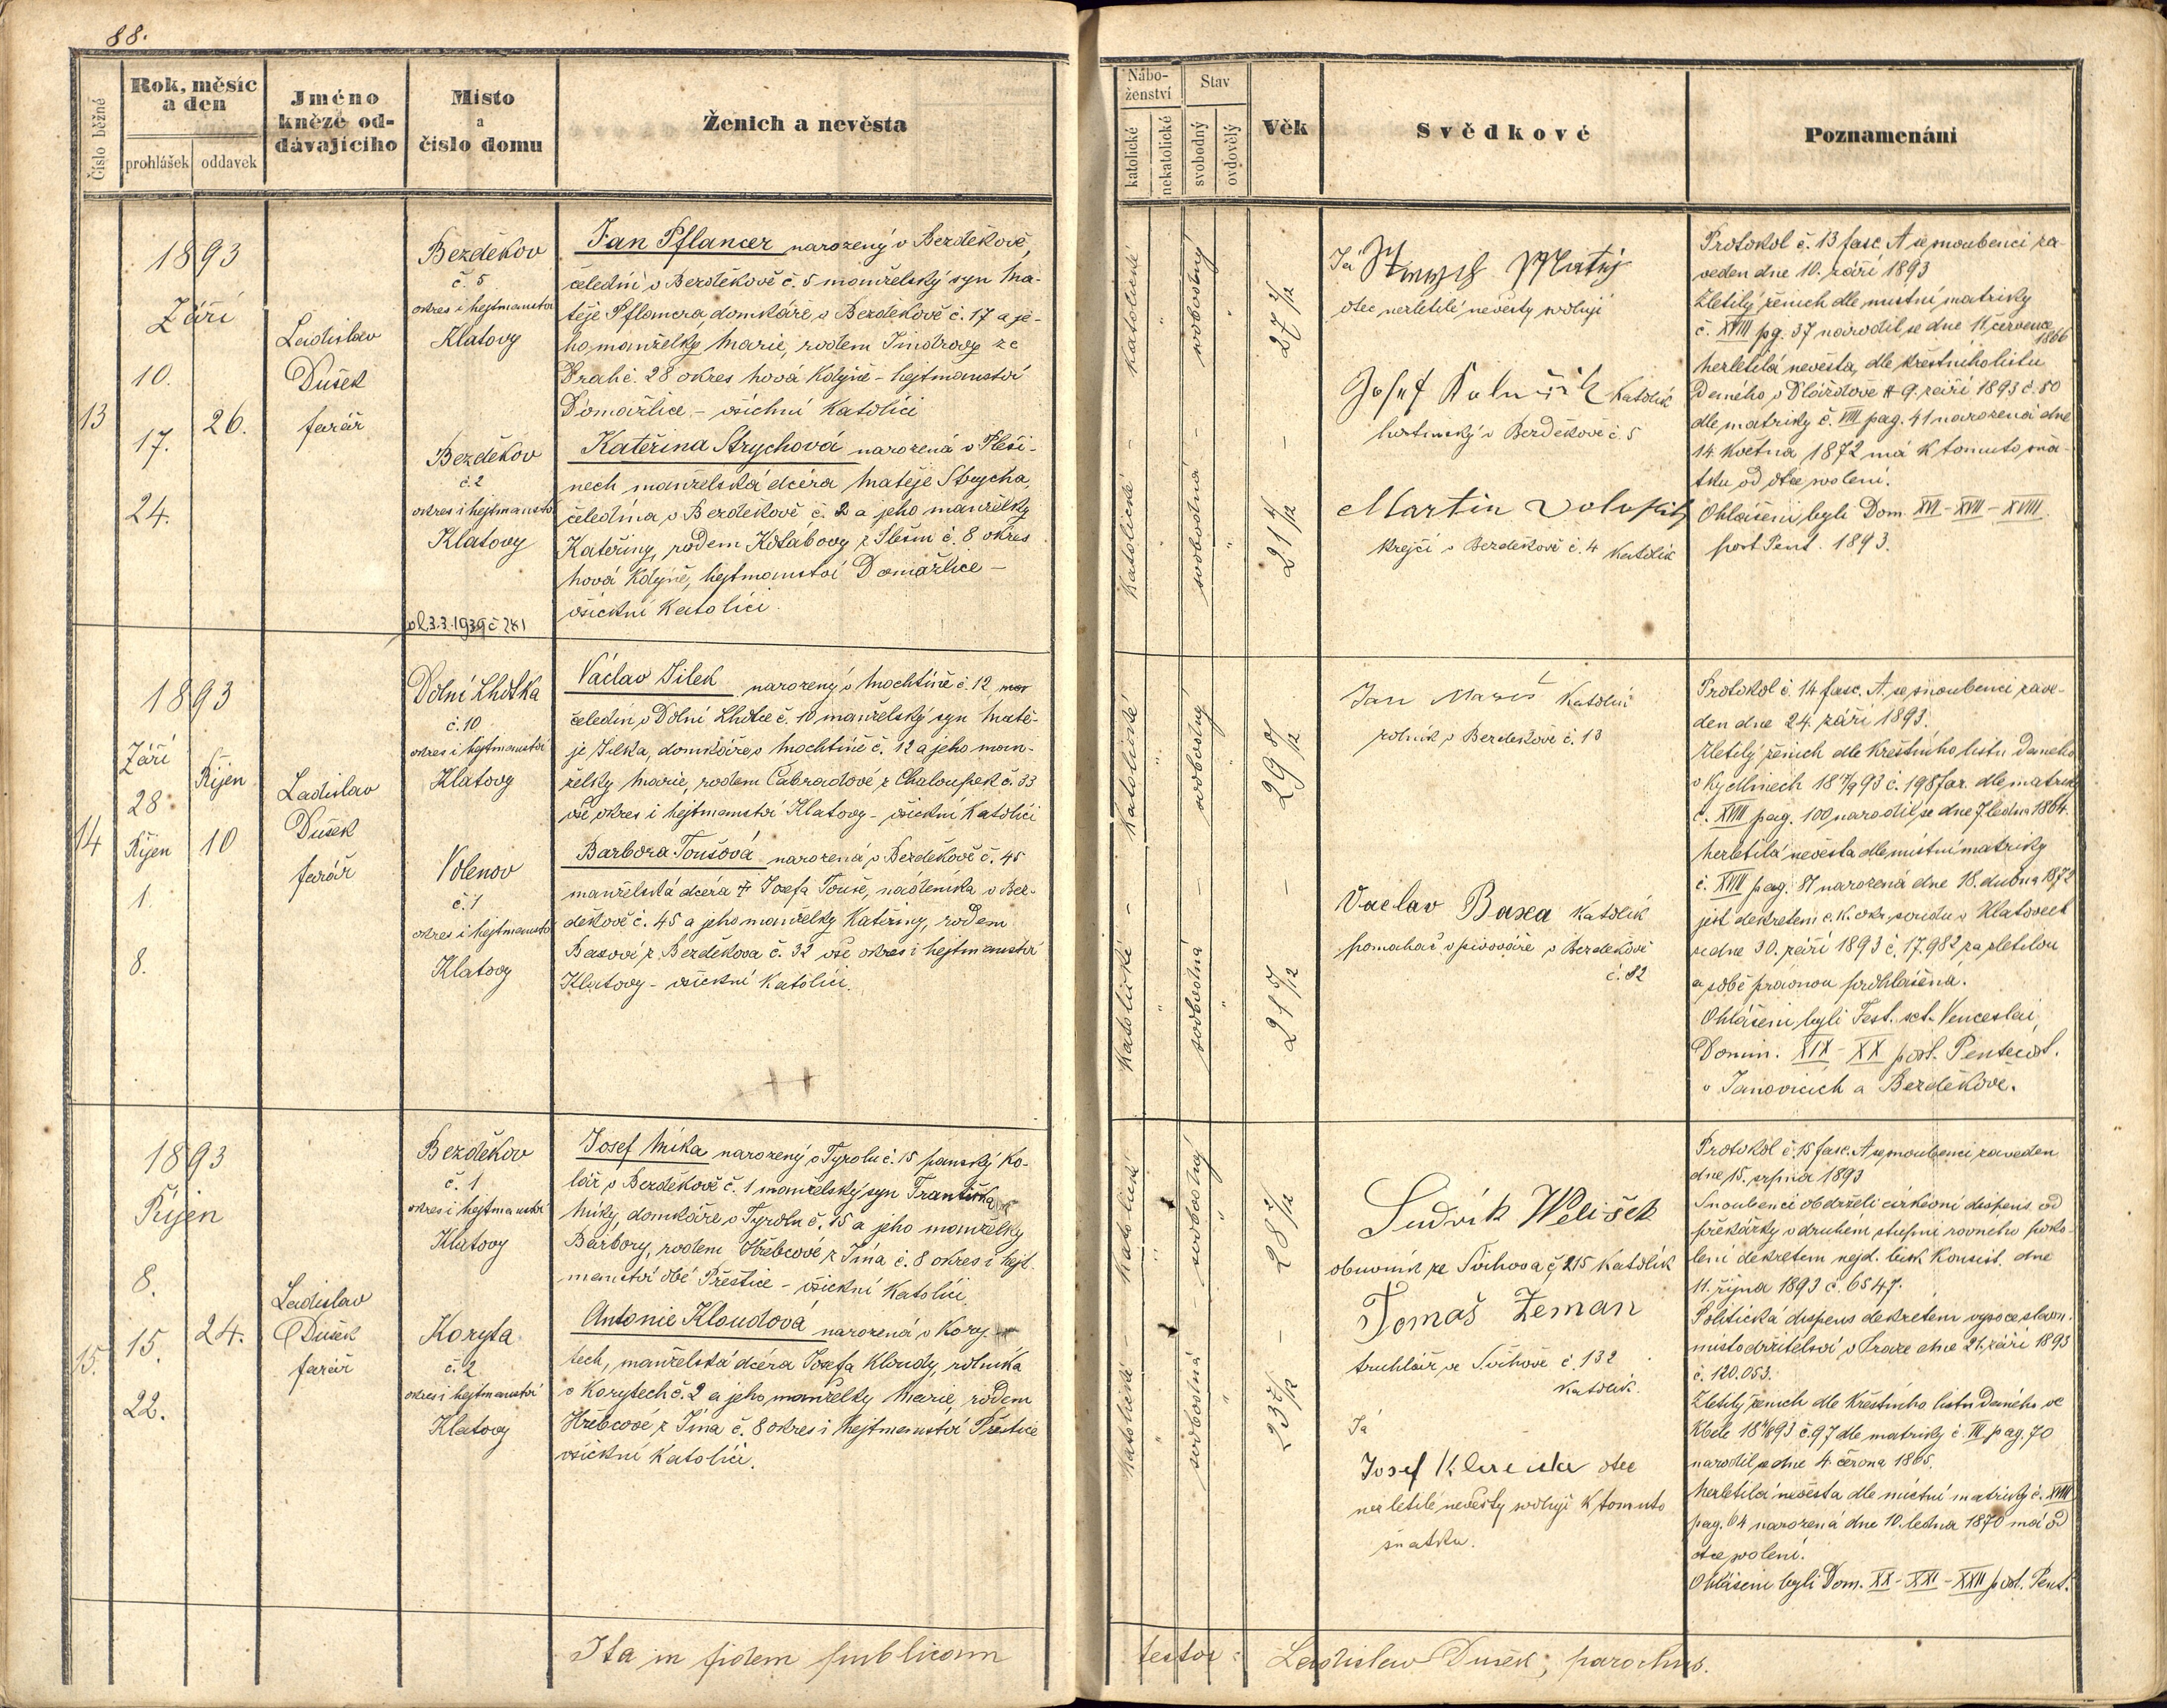 88.
Číslo běžné
Rok, měsíc
a den
prohlášek
oddavek
Jméno
kněze od-
dávajícího
Místo
a
číslo domu
Ženich a nevěsta
13
1893
Září
10.
17.
24.
26.
Ladislav
Dušek
farář
Bezděkov
č. 5
okres i hejtmanství
Klatovy
Bezděkov
č. 2
okres i hejtmanství
Klatovy
Jan Pflancer narozený v Bezděkově,
čeledín v Bezděkově č. 5 manželský syn Ma-
těje Pflancra, domkáře v Bezděkově č. 17 a je-
ho manželky Marie, rodem Jindrovy ze
č. 28 okres Nová Kdyně - hejtmanství
Domažlice - všichni katolíci
Kateřina Strychová narozená v Pleši-
nech manželská dcera Matěje Strycha,
čeledína v Bezděkově č. 2 a jeho manželky
Kateřiny, rodem z č. 8 okres
Nová Kdyně, hejtmanství Domažlice -
všickni katolíci.
14
1893
Září
28
Říjen
1.
8.
Říjen
10
Ladislav
Dušek
farář
Dolní Lhotka
č. 10
okres i hejtmanství
Klatovy
Volenov
č. 1
okres i hejtmanství
Klatovy
Václav Jílek narozený v Mochtíně č. 12
čeledín v Dolní Lhotce č. 10 manželský syn Matě-
je Jílka, domkáře v Mochtíně č. 12 a jeho man-
želky Marie, rodem Čabradové z Chaloupek č. 33
vše okres i hejtmanství Klatovy - všickni katolíci
Barbora Toušová narozená v Bezděkově č. 45
manželská dcera † Josefa Touše, nádeníka v Bez-
děkově č. 45 a jeho manželky Kateřiny, rodem
Baxové z Bezděkova č. 32 vše okres i hejtmanství
Klatovy - všickni katolíci.
15.
1893
Říjen
8.
15.
22.
24.
Ladislav
Dušek
farář
Bezděkov
č. 1
okres i hejtmanství
Klatovy
Koryta
č. 2
okres i hejtmanství
Klatovy
Josef Míka narozený v Tyrolu č. 15 panský ko-
lář v Bezděkově č. 1 manželský syn Františka
Míky, domkáře v Tyrolu č. 15 a jeho manželky
Barbory, rodem Hřebcové z Jína č. 8 okres i hejt-
manství obé Přeštice - všickni katolíci.
Antonie Kloudová narozená v Kory-
tech, manželská dcera Josefa Kloudy, rolníka
v Korytech č. 2 a jeho manželky Marie, rodem
Hřebcové z Jína č. 8 okres i hejtmanství Přeštice
všickni katolíci.
Ita in fidem publicam
Nábo-
ženství
Stav
katolické
nekatolické
svobodný
ovdovělý
Věk
Svědkové
Poznamenání
katolické
"
svobodný
"
27 2/12
katolické
"
svobodná
"
21 4/12
Já Matěj
otec nezletilé nevěsty svoluji
Josef katolík
v Bezděkově č. 5
Martin
krejčí v Bezděkově č. 4 katolík
Protokol č. 13 fasc. A se snoubenci za-
veden dne 10. září 1893
Zletilý ženich dle místní matriky
č. XVIII pg. 37 narodil se dne 11. července
1866
Nezletilá nevěsta, dle křestního listu
daného v Dlážďově 9. září 1893 č. 80
dle matriky č. VIII pag. 41 narozená dne
14 května 1872 má k tomuto sňa-
tku od otce svolení.
Ohlášeni byli Dom. XVI - XVII - XVIII
post Pent. 1893.
katolické
"
svobodný
"
29 8/12
katolické
"
svobodná
"
21 5/12
Jan Mareš katolík
rolník v Bezděkově č. 13
Vaclav Baxa katolík
pomahač v pivováře v Bezděkově
č. 82
Protokol č. 14 fasc. A. se snoubenci zave-
den dne 24. září 1893.
Zletilý ženich dle křestního listu daného
v Kydlinech č. 198 far. dle matriky
č. XVIII pag. 100 narodil se dne 7. ledna 1864.
Nezletilá nevěsta dle místní matriky
č. XVIII pag. 81 narozená dne 18. dubna 1872
jest dekretem c. k. okr. soudu v Klatovech
ze dne 30. září 1893 č. 17.982 za zletilou
a sobě právnou prohlášena.
Ohlášeni byli Fest. sct. Venceslai,
Domin. XIX - XX post. Pentecost.
v Janovicích a Bezděkově.
katolické
"
svobodný
"
28
katolické
"
svobodná
"
23
Ludvík Welišek
obuvník ze Švihova č. 215 katolík
Tomaš Zeman
truhlář ve Švihově č. 132
katolík.
Já
Josef Klouda otec
nezletilé nevěsty svoluji k tomuto
sňatku.
Protokol č. 15 fasc. A se snoubenci zaveden
dne 15. srpna 1893
Snoubenci obdrželi církevní dispens od
překážky v druhém stupni rovného poko-
lení dekretem nejd. bisk. konsist. dne
11. října 1893 č. 6547.
Politická dispens dekretem vysoce slavn.
místodržitelství v Praze dne 21. září 1893
č. 120.053.
Zletilý ženich dle křestního listu daného ve
Kbele č. 97 dle matriky č. III pag. 70
narodil se dne 4. června 1865.
Nezletilá nevěsta dle místní matriky č. XVIII
pag. 64 narozená dne 10. ledna 1870 má od
otce svolení.
Ohlášeni byli Dom. XX - XXI - XXII post. Pent.
testor: Ladislav Dušek, parochus.